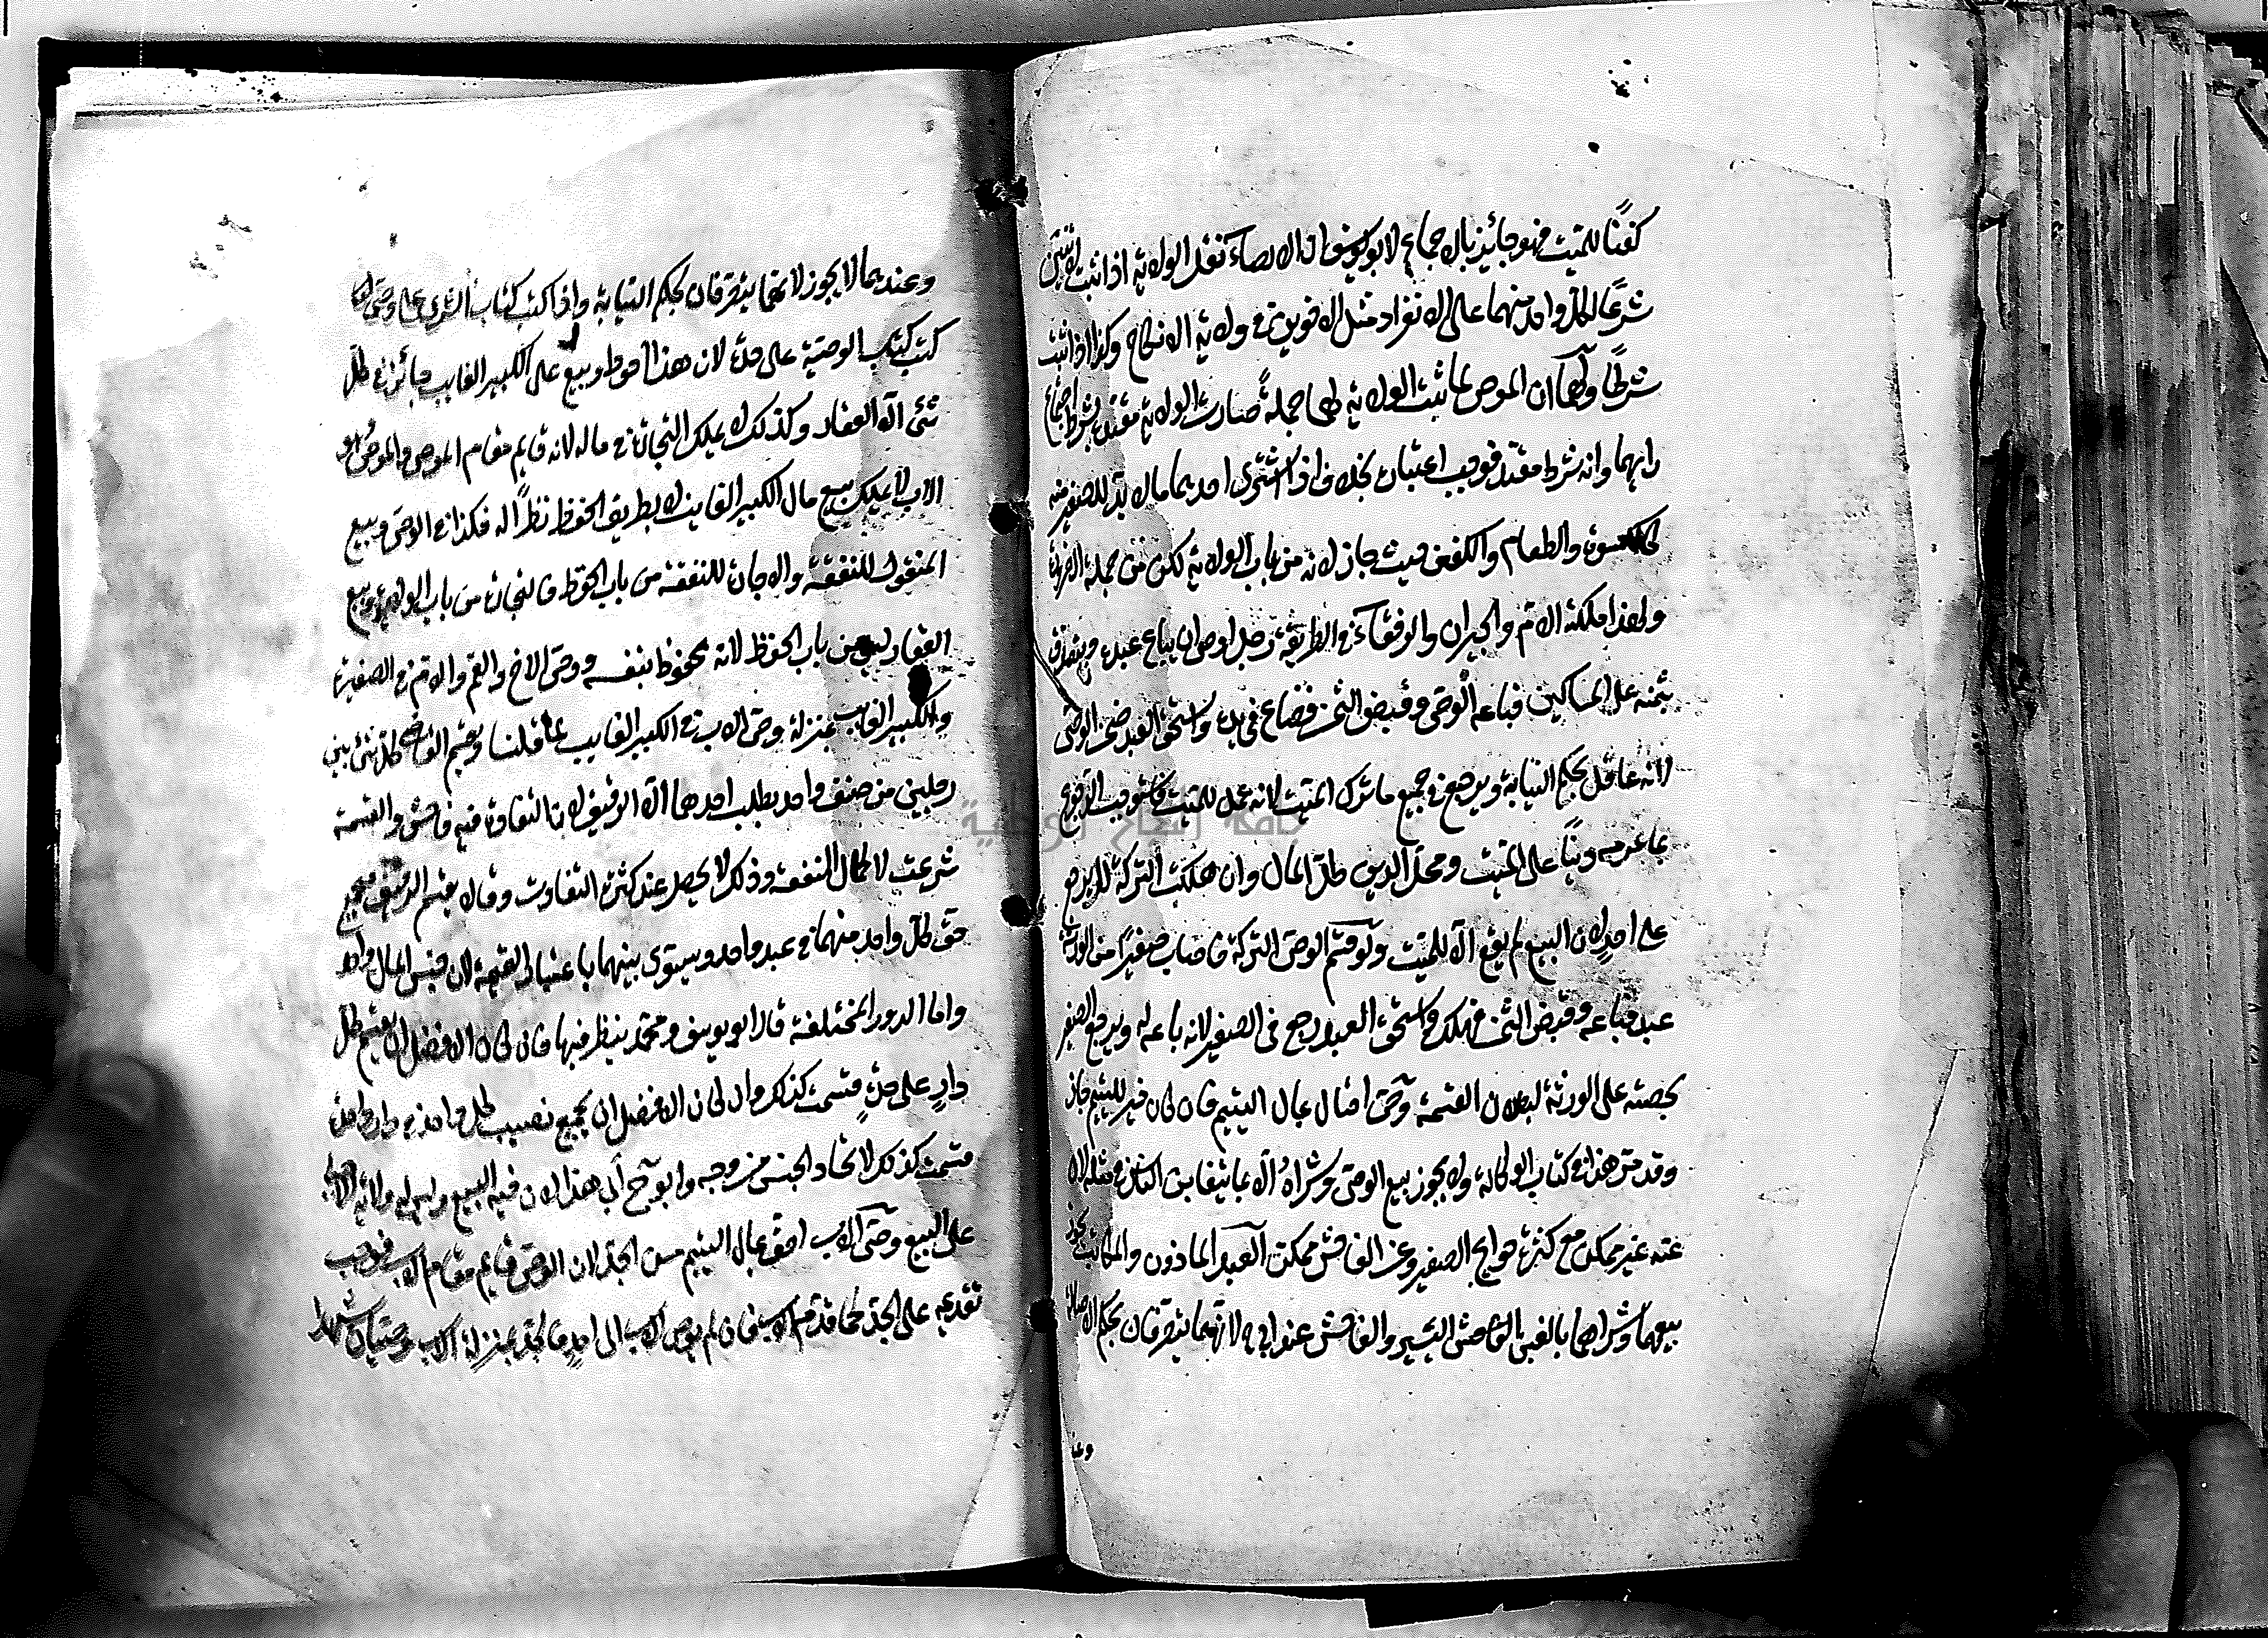 كفنًا للميت فهو جائز بالاجماع لابو يوسف ان الايصاء نقل الولاية اذا ثبت لاثنين
شرعًا لكل واحد منهما على الانفراد مثل الاخوين في ولاية الانكاح وكذا اذا ثبت
شرطًا ولهما ان الموصي لما ثبت الولاية لهما جملةً صارت الولاية مقيدة بشرط اجتماع
رايهما وانه شرط مقيد فوجب اعتباره بخلاف اذا اشترى احدهما مالا بد للصغير منه
كالكسوة والطعام والكفن حيث جاز لانه من باب الولاية لكن من جملة
ولهذا تملكه الام والجيران والرفقاء في الطريق رجل اوصى ان يباع عبده ويتصدق
بثمنه على المساكين فباعه الوصي وقبض الثمن فضاع في يده واستحق العبد ضمن الوصي
لانه عاقد بحكم النيابة ويرجع في جميع ما ترك الميت لانه عمل للميت فاستوجب الرجوع
بما غرم دينًا على الميت ومحل الدين كل المال وان هلكت التركة لا يرجع
على احد لان البيع لم يقع الا للميت ولو قسم الوصي التركة فاصاب صغيرًا من الورثة
عبد فباعه وقبض الثمن فهلك واستحق العبد رجع في الصغير لانه باعه له ويرجع الصغير
بحصته على الورثة لبطلان القسمة وصي احتال بمال اليتيم فان كان خير لليتيم جاز
وقد مر هذا في كتاب الوكالة ولا يجوز بيع الوصي وشراه الا بما يتغابن الناس في مثله لان
عنه غير ممكن مع كثرة حوايج الصغير وعن الفاحش ممكن العبد الماذون والمكاتب يجوز
بيعهما وشراهما بالغبن الفاحش اليسير والفاحش عند ابي ح لانهما يتصرفان بحكم الاصالة
وعند
وعندهما لا يجوز لانهما يتصرفان بحكم النيابة واذا كتب كتاب الشرى على وصي
كتب كتاب الوصية على حدة لان هذا احوط وبيع على الكبير الغايب جائز في كل
شئ الا العقار وكذلك لا يملك التجارة في ماله لانه قايم مقام الموصي والموصي هو
الاب لا يملك بيع مال الكبير الغايب الا بطريق الحفظ نظرًا له فكذا في الوصي وبيع
المنقول للنفقة والاجارة للنفقة من باب الحفظ فالتجارة من باب الولاية وبيع
العقار ليس من باب الحفظ لانه محفوظ بنفسه ووصي الاخ والعم والام في الصغير
والكبير الغايب بمنزلة وصي الاب في الكبير الغايب لما قلنا ويقسم القاضي كل شئ بين
رجلين من صنف واحد بطلب احدهما الا الرقيق لان التفاوت فيه فاحش والقسمة
شرعت لاكمال المنفعة وذلك لا يحصل عند كثرة التفاوت وقالا يقسم الرقيق فيجمع
حق كل واحد منهما في عبد واحد ويستوي بينهما باعتبار القيمة لان جنس المال واحد
واما الدور المختلفة قال ابو يوسف ومحمد ينظر فيها فان كان الافضل ان يقسم كل
دارٍ على حدة قسمت كذلك وان كان الافضل ان يجمع نصيب كل واحد في دار واحدة
قسمت كذلك لاتحاد الجنس من وجه وابو ح ابى هذا لان فيه البيع وليس له ولاية الاجبار
على البيع وصي الاب احق بمال اليتيم من الجد لان الوصي قايم مقام الاب فوجب
تقديمه على الجد كما قدم الاب فان لم يوص الاب الى احد فالجد بمنزلة الاب وصيان شهدا